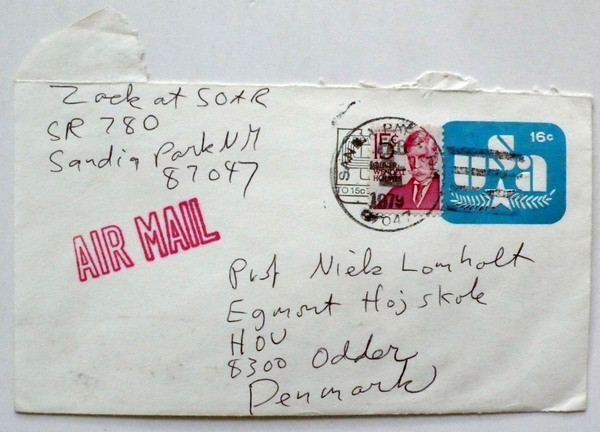 Zack at SOAR
SR 780
Sandia Park NM
87047
AIR MAIL
15c
TO 15c
1979
16c
USA
Prof Niels Lomholt
Egmont Højskole
HOU
8300 Odder
Denmark